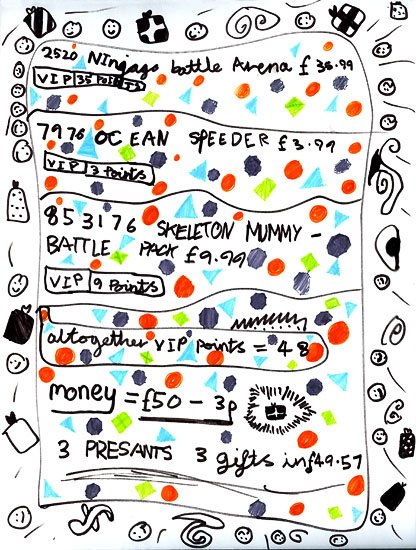 2520 NINjago battle Arena £ 36.99
VIP 35 Points
7976 OCEAN SPEEDER £3.99
VIP 3 Points
853176 SKELETON MUMMY -
BATTLE PACK £9.99
VIP 9 Points
altogether VIP points = 48
money = £50 - 3p
3 PRESANTS 3 gifts in £49.57